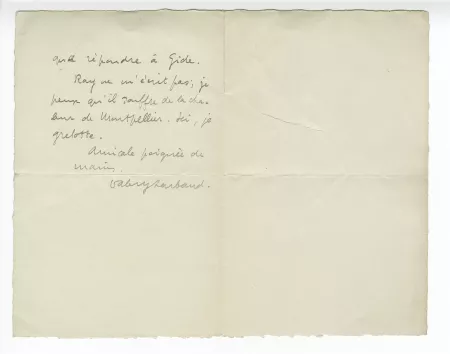 répondre à Gide.
Ray ne m'écrit pas; je
pense qu'il souffre de la cha-
leur de Montpellier. Ici, je
grelotte.
Amicale poignée de
mains.
Valery Larbaud.